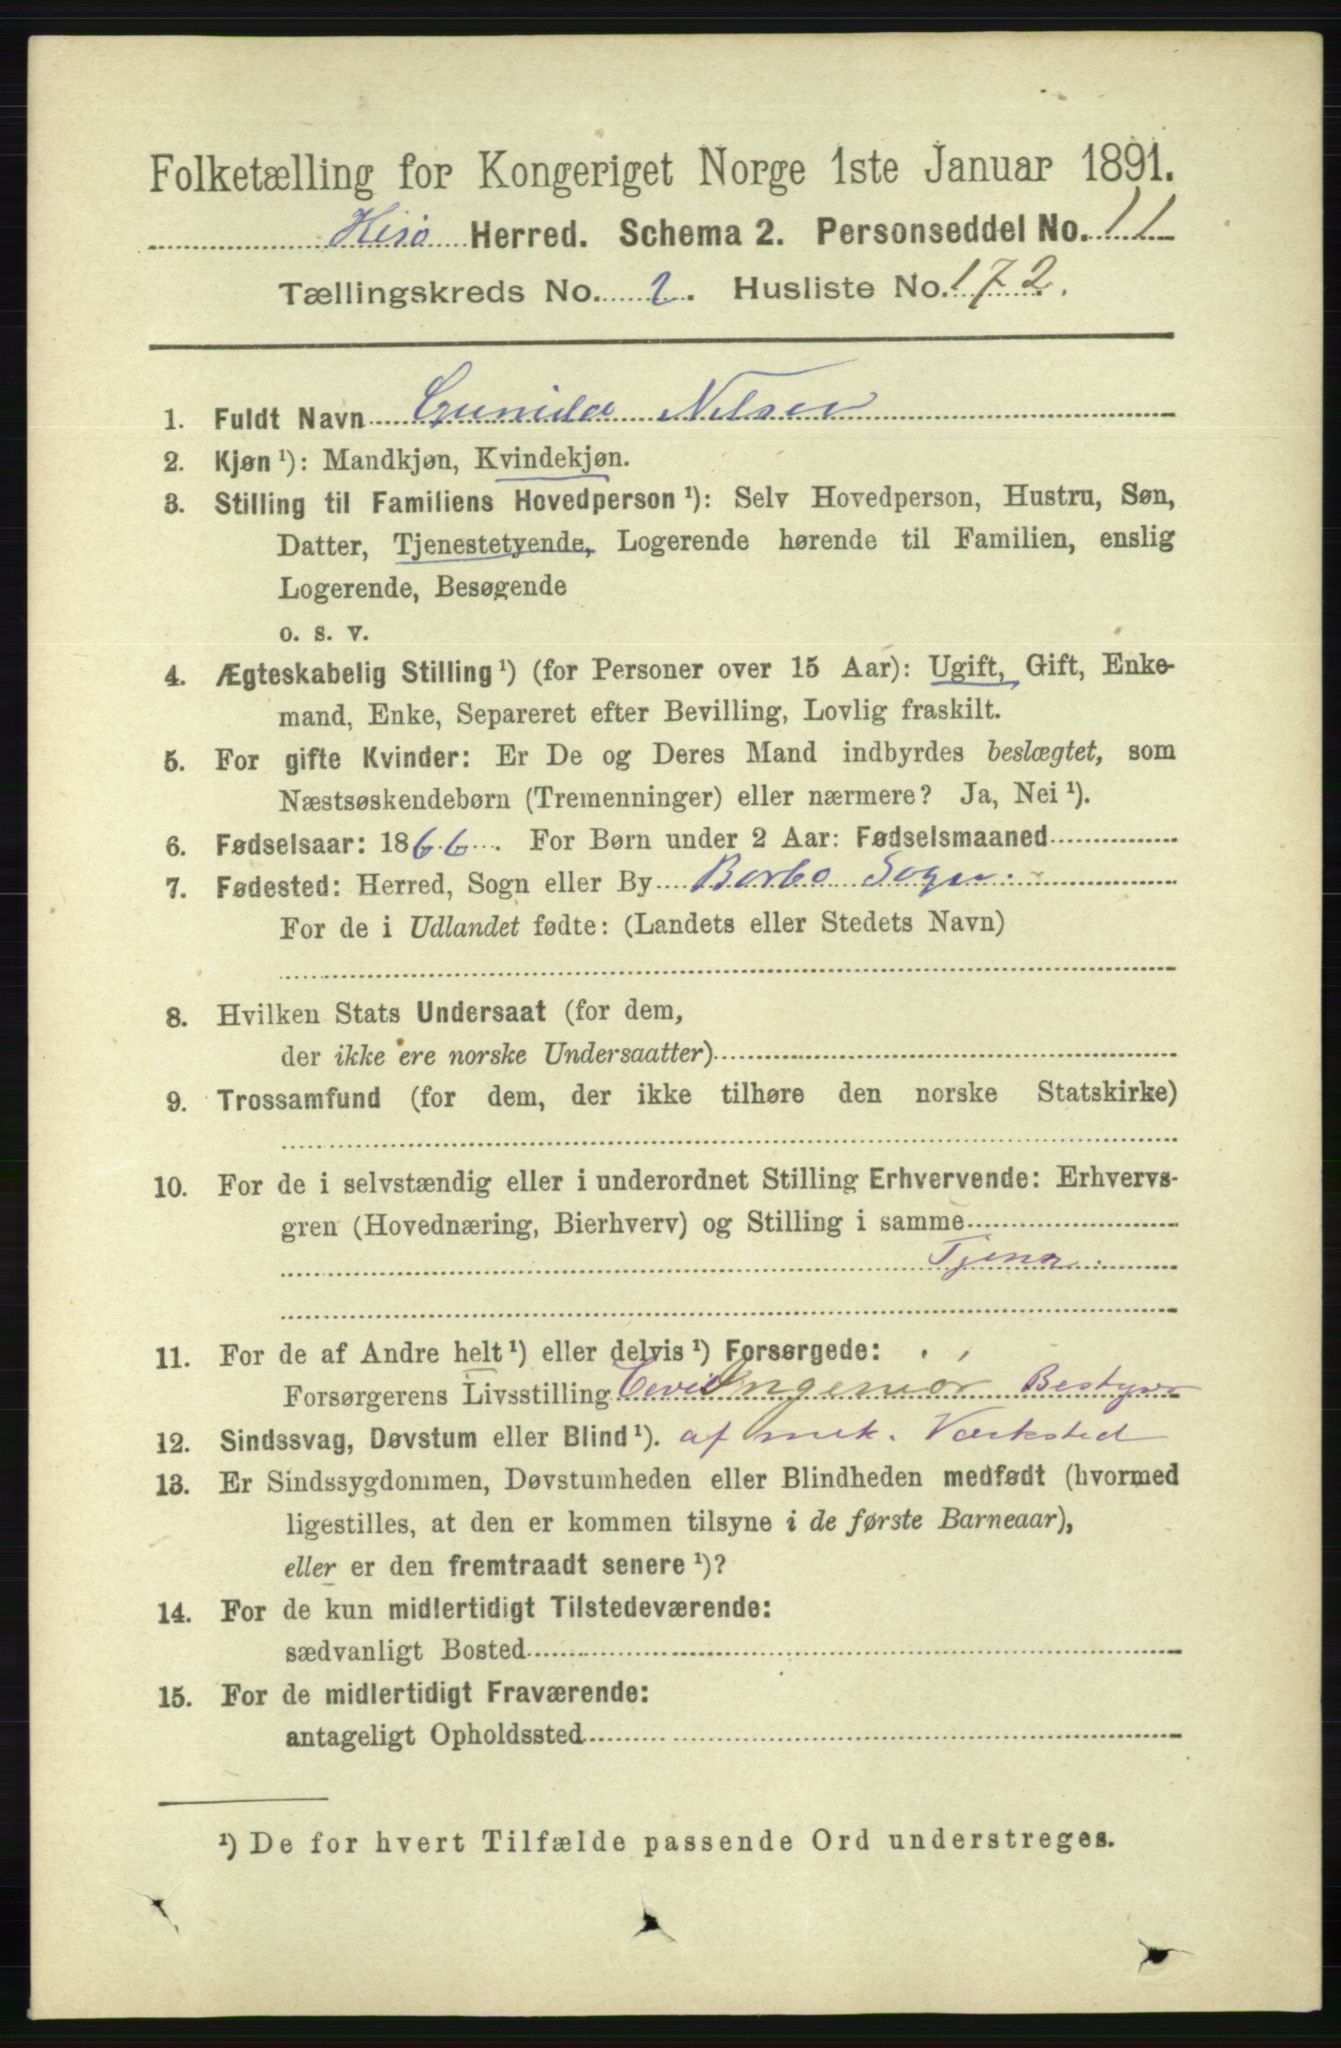 Folketælling for Kongeriget Norge 1ste Januar 1891.
Hisø Herred. Schema 2. Personseddel No. 11
Tællingskreds No. 2. Husliste No. 172.
1. Fuldt Navn Gunilde Nilsen
2. Kjøn ¹): Mandkjøn, Kvindekjøn.
3. Stilling til Familiens Hovedperson ¹): Selv Hovedperson, Hustru, Søn,
Datter, Tjenestetyende, Logerende hørende til Familien, enslig
Logerende, Besøgende
o. s. v.
4. Ægteskabelig Stilling ¹) (for Personer over 15 Aar): Ugift, Gift, Enke-
mand, Enke, Separeret efter Bevilling, Lovlig fraskilt.
5. For gifte Kvinder: Er De og Deres Mand indbyrdes beslægtet, som
Næstsøskendebørn (Tremenninger) eller nærmere? Ja, Nei ¹).
6. Fødselsaar: 1866. For Børn under 2 Aar: Fødselsmaaned
7. Fødested: Herred, Sogn eller By Barbo Sogn.
For de i Udlandet fødte: (Landets eller Stedets Navn)
8. Hvilken Stats Undersaat (for dem,
der ikke ere norske Undersaatter)
9. Trossamfund (for dem, der ikke tilhøre den norske Statskirke)
10. For de i selvstændig eller i underordnet Stilling Erhvervende: Erhvervs-
gren (Hovednæring, Bierhverv) og Stilling i samme
11. For de af Andre helt ¹) eller delvis ¹) Forsørgede:
Forsørgerens Livsstilling Civil Ingeniør Bestyrer
12. Sindssvag, Døvstum eller Blind ¹). af mek. Værksted
13. Er Sindssygdommen, Døvstumheden eller Blindheden medfødt (hvormed
ligestilles, at den er kommen tilsyne i de første Barneaar),
eller er den fremtraadt senere ¹)?
14. For de kun midlertidigt Tilstedeværende:
sædvanligt Bosted
15. For de midlertidigt Fraværende:
antageligt Opholdssted
¹) De for hvert Tilfælde passende Ord understreges.